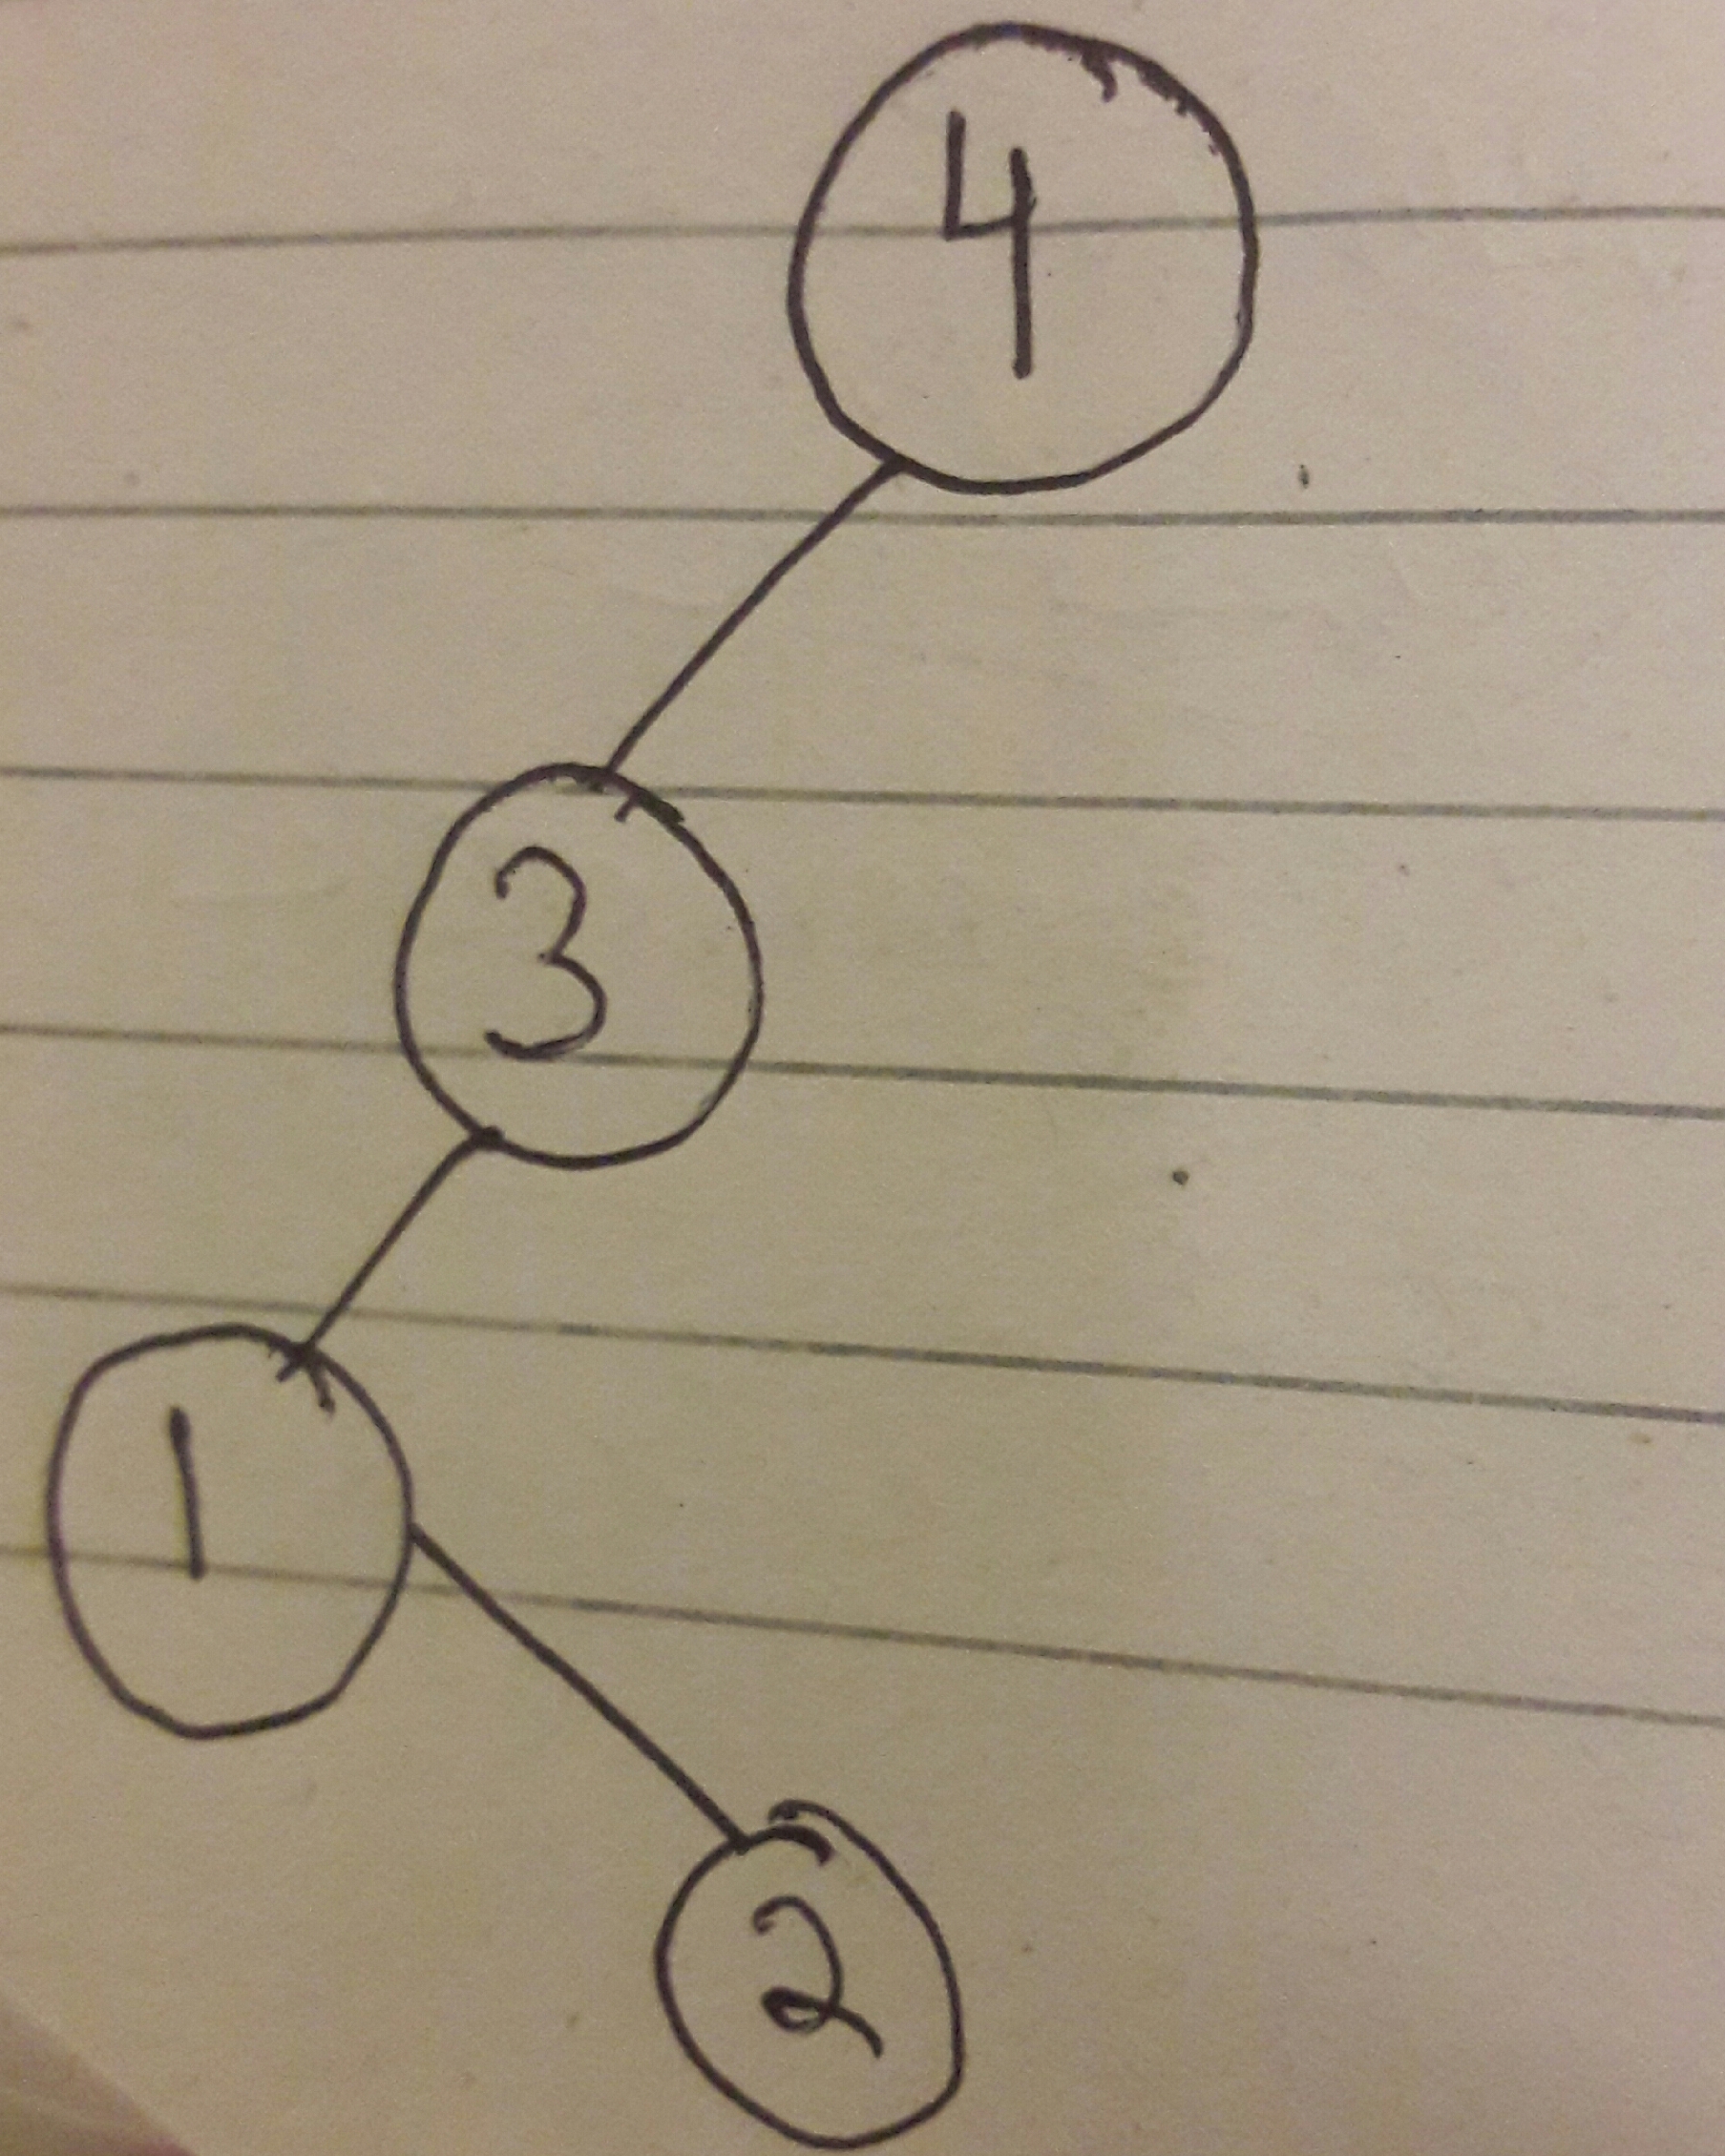 4
3
1
2